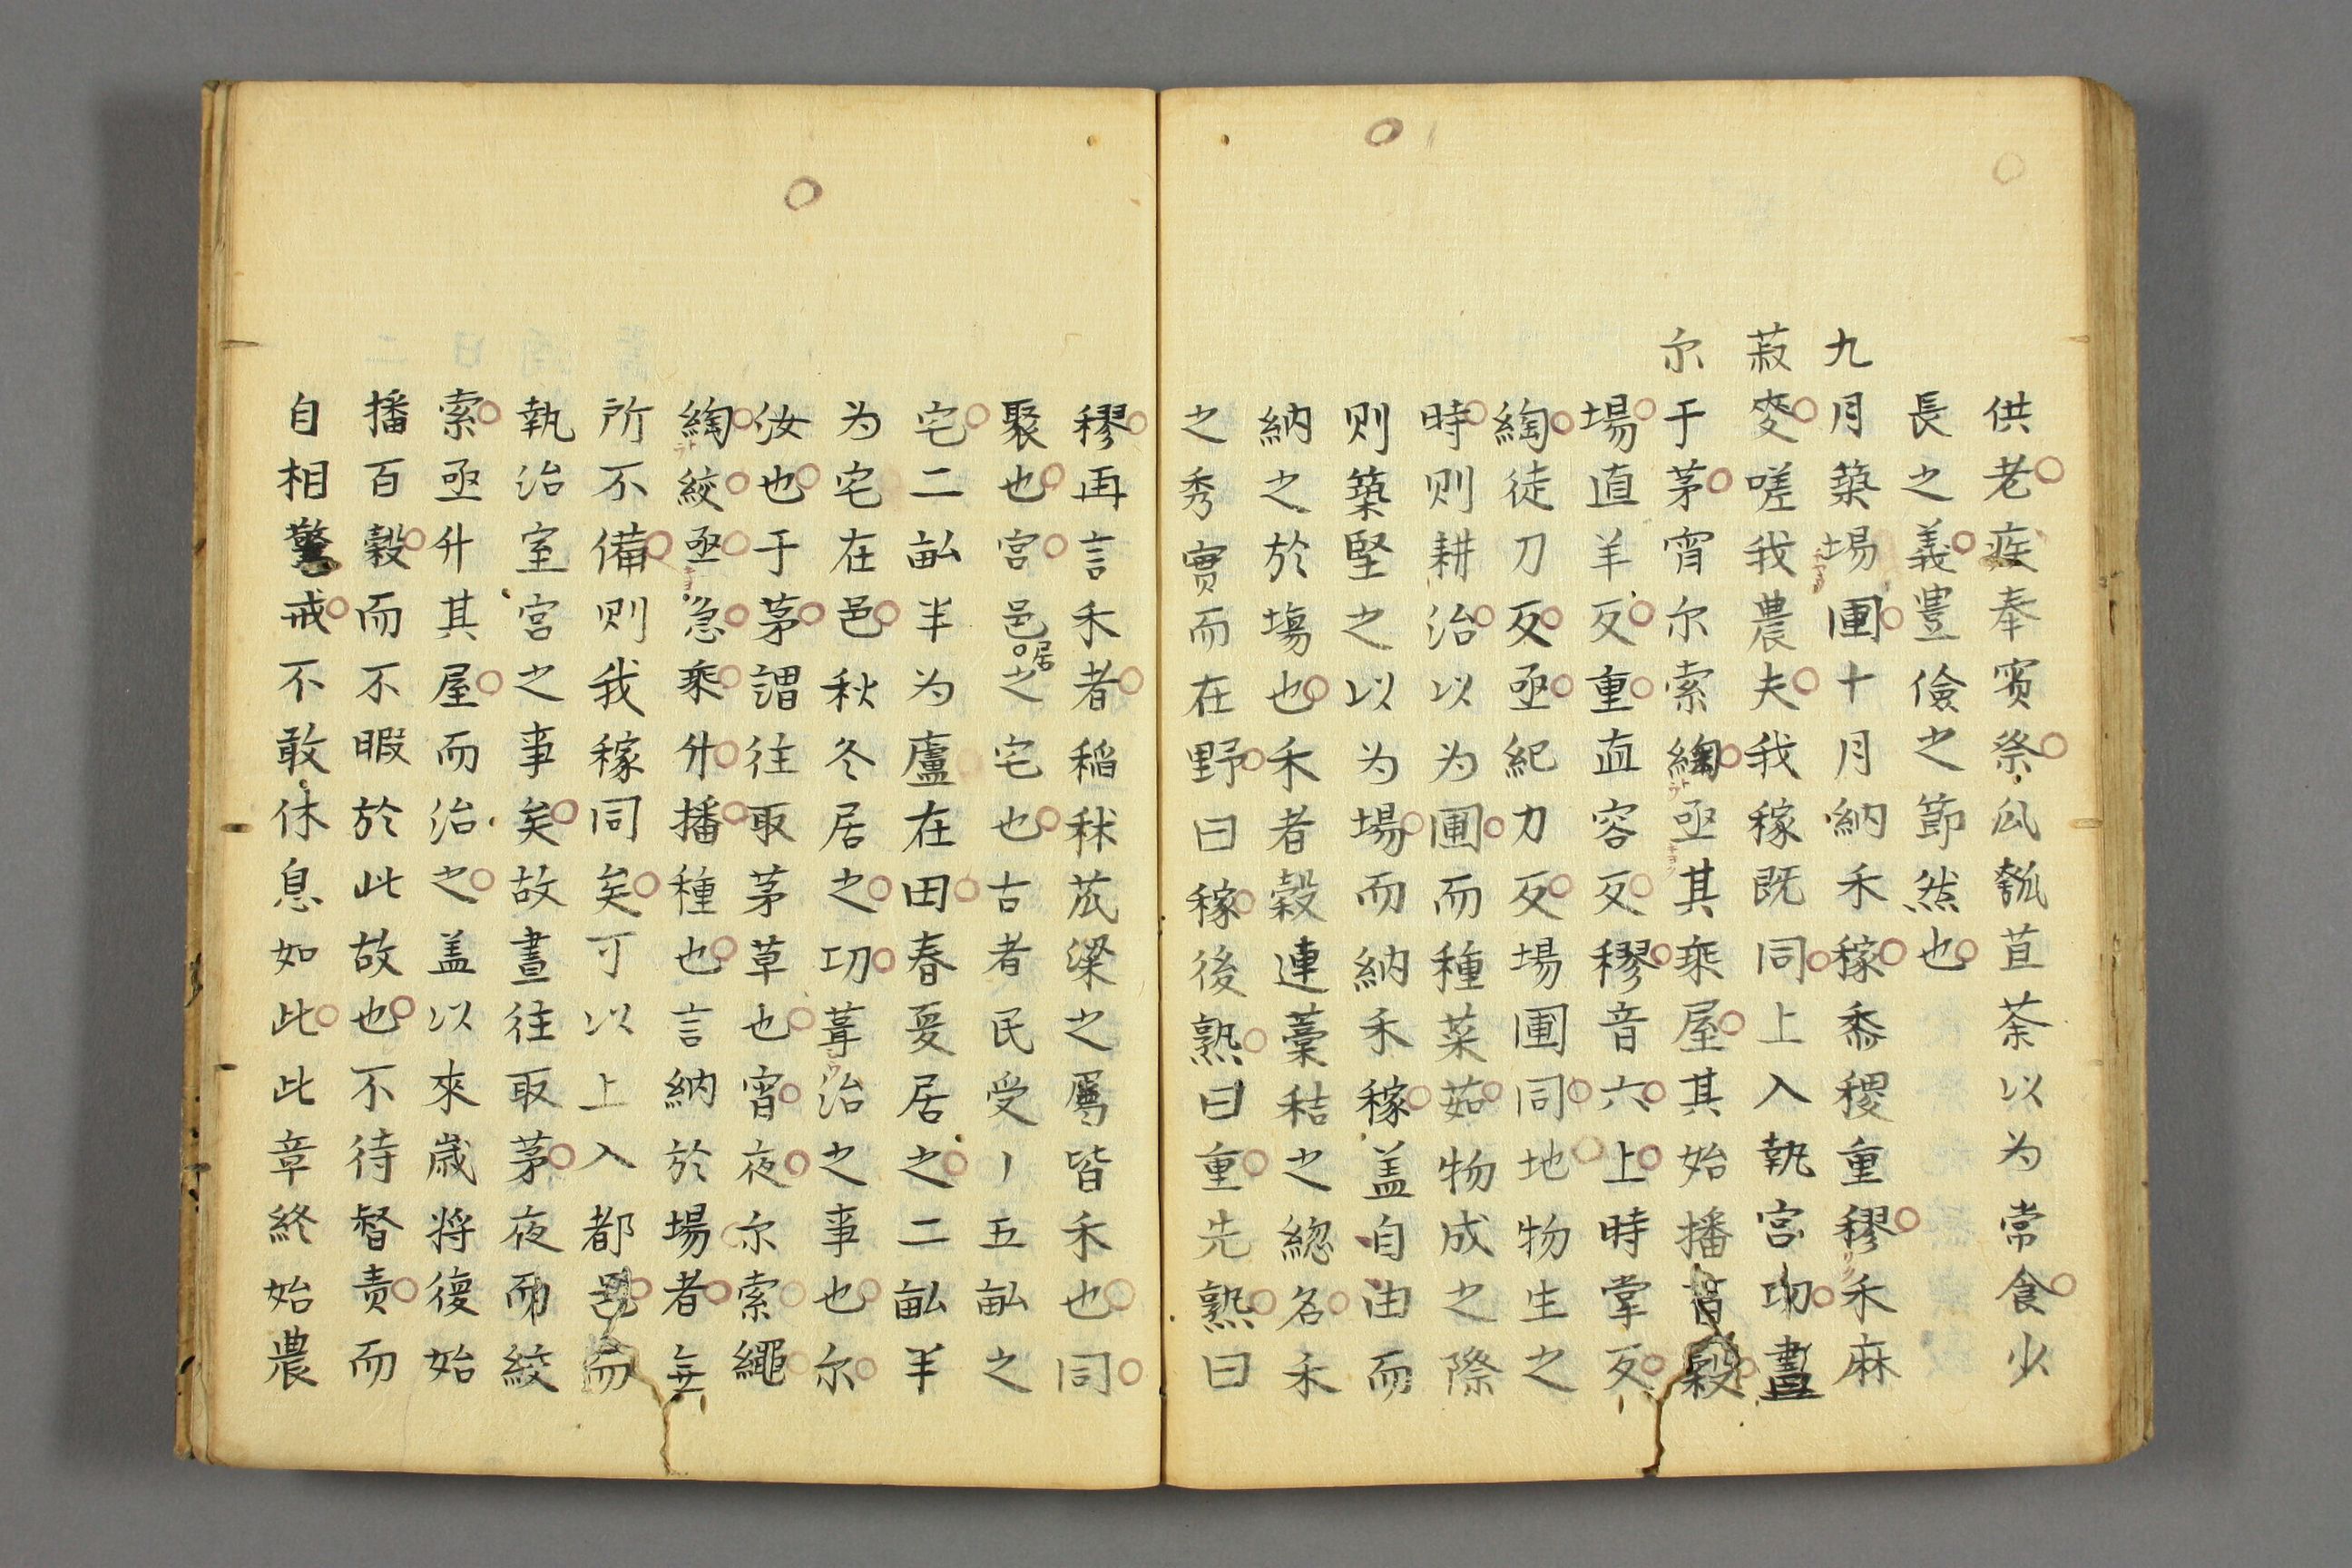 供老疾奉賓祭瓜瓠苴荼以为常食少
長之義豊儉之節然也
九月築場圃十月納禾稼黍稷重穋禾麻
菽麥嗟我農夫我稼既同上入執宮功晝
尔于茅宵尔索綯亟其乘屋其始播百穀
場直羊反重直容反穋音六上時掌反
綯徒刀反亟紀力反場圃同地物生之
時则耕治以为圃而種菜茹物成之際
则築堅之以为場而納禾稼盖自由而
納之於場也禾者穀連藁秸之緫名禾
之秀實而在野曰稼後熟曰重先熟曰
穋再言禾者稲秫苽梁之屬皆禾也同
聚也宮邑居之宅也古者民受丨五畝之
宅二畝半为廬在田春夏居之二畝半
为宅在邑秋冬居之功葺治之事也尔
汝也于茅謂往取茅草也宵夜尔索繩
綯絞亟急乘升播種也言納於場者無
所不備则我稼同矣可以上入都邑而
執治室宮之事矣故晝往取茅夜而絞
索亟升其屋而治之盖以來歳将復始
播百穀而不暇於此故也不待督责而
自相驚戒不敢休息如此此章終始農